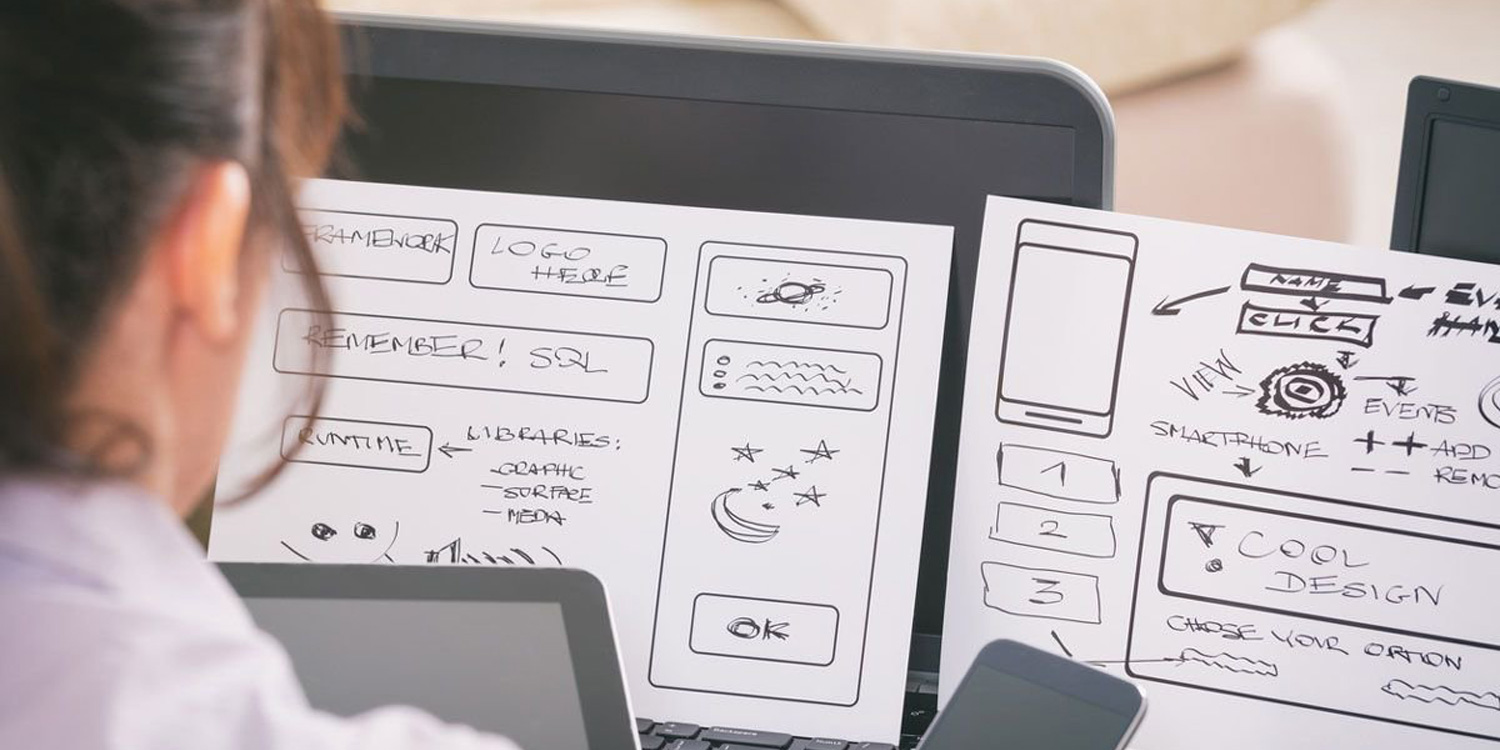 FRAMEWORK
LOGO
HERE
REMEMBER! SQL
RUNTIME
LIBRARIES:
-GRAPHIC
-SURFACE
-MEDIA
OK
NAME
CLICK
VIEW
EVENTS
SMARTPHONE
++ ADD
--
1
2
3
COOL
DESIGN
CHOOSE YOUR OPTION
Backspace